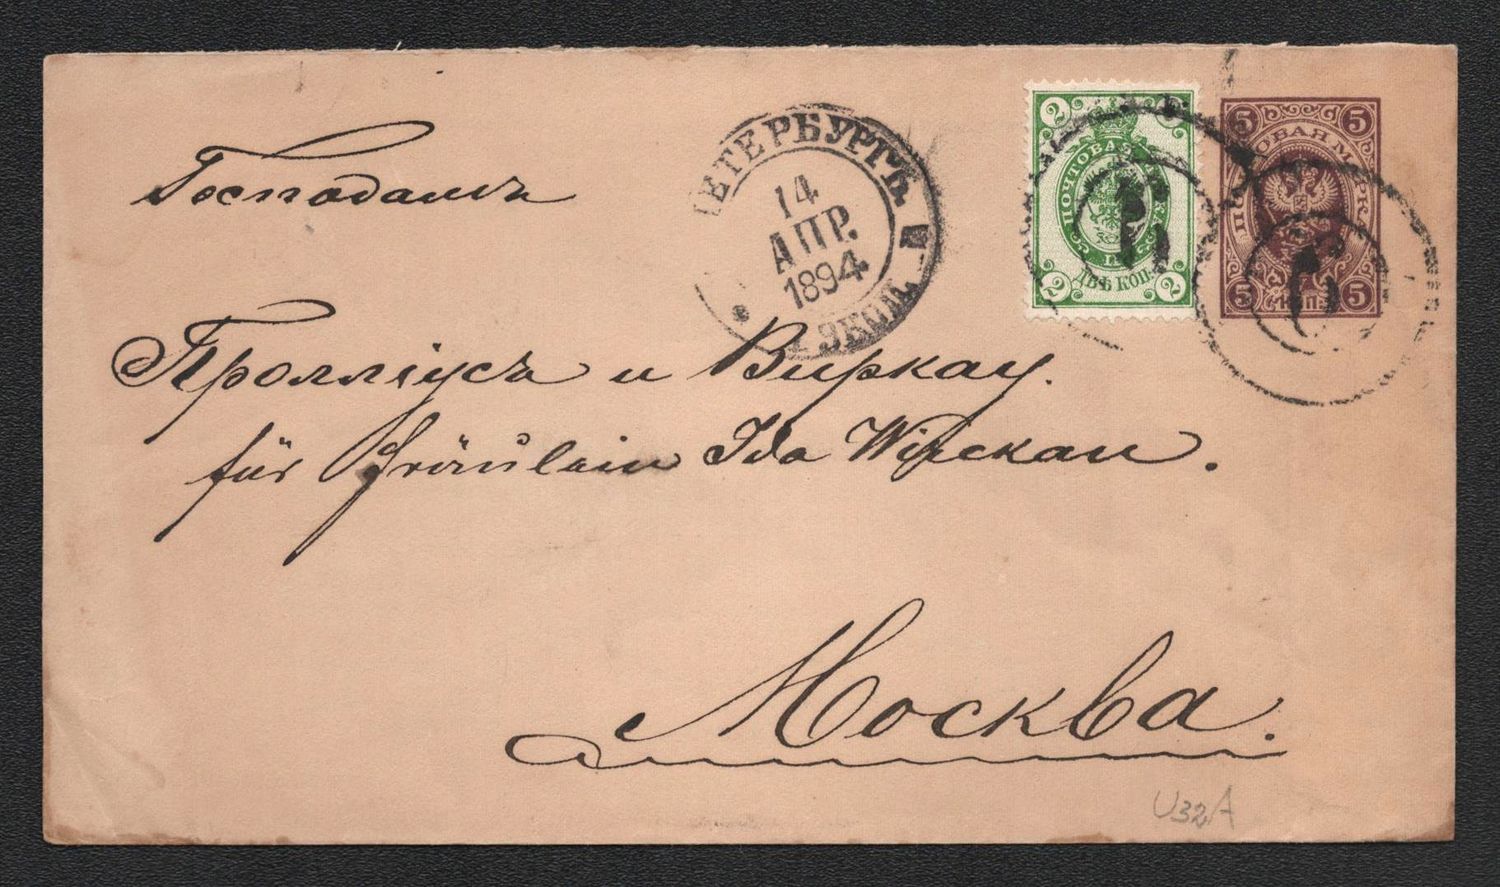 Господамъ
Пролліусъ и Виркау.
für Fräulein Ida Wirckau.
Москва.
ПЕТЕРБУРГЪ
14
АПР.
1894
ЭКСП.
2 2
ПОЧТОВАЯ МАРКА
ДВѢ КОП.
2 2
6
5 5
ПОЧТОВАЯ МАРКА
5 КОП. 5
6
U32A